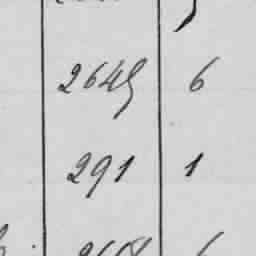 2645 6
291 1